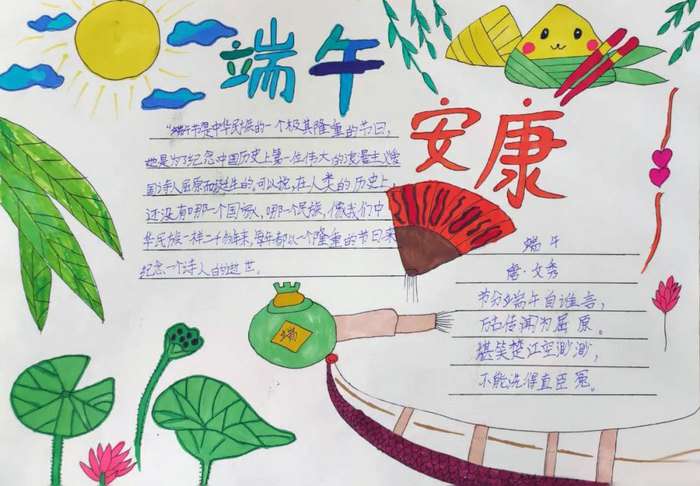 端午
安康
"端午节是中华民族的一个极其隆重的节日,
她是为了纪念中国历史上第一位伟大的浪漫主义爱
国诗人屈原而诞生的,可以说,在人类的历史上,
还没有哪一个国家,哪一个民族,像我们中
华民族一样二千年来,每年都以一个隆重的节日来
纪念一个诗人的逝世.
端午
唐·文秀
节分端午自谁言,
万古传闻为屈原。
堪笑楚江空渺渺,
不能洗得直臣冤。